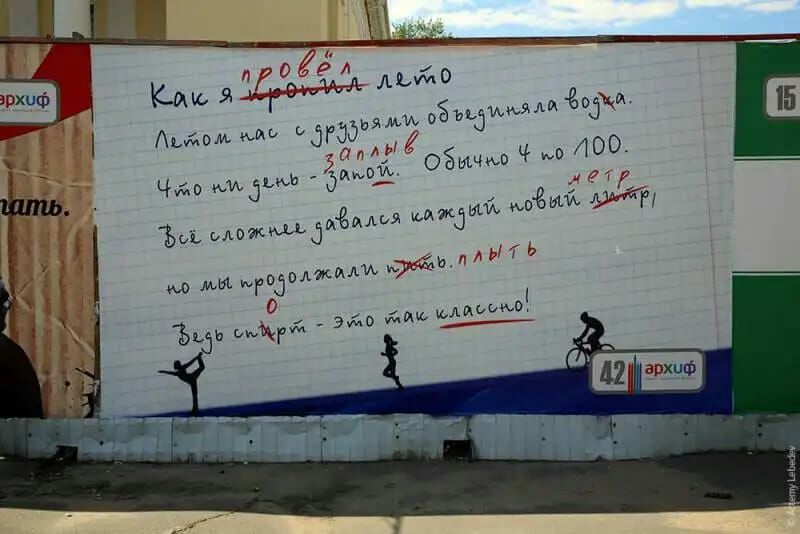 архиф
тать.
провёл
Как я пропил лето
Летом нас с друзьями объединяла водка.
заплыв
Что ни день - запой. Обычно 4 по 100.
метр
Всё сложнее давался каждый новый литр,
но мы продолжали пить. плыть
о
Ведь спирт - это так классно!
42 архиф
15
© Artemy Lebedev